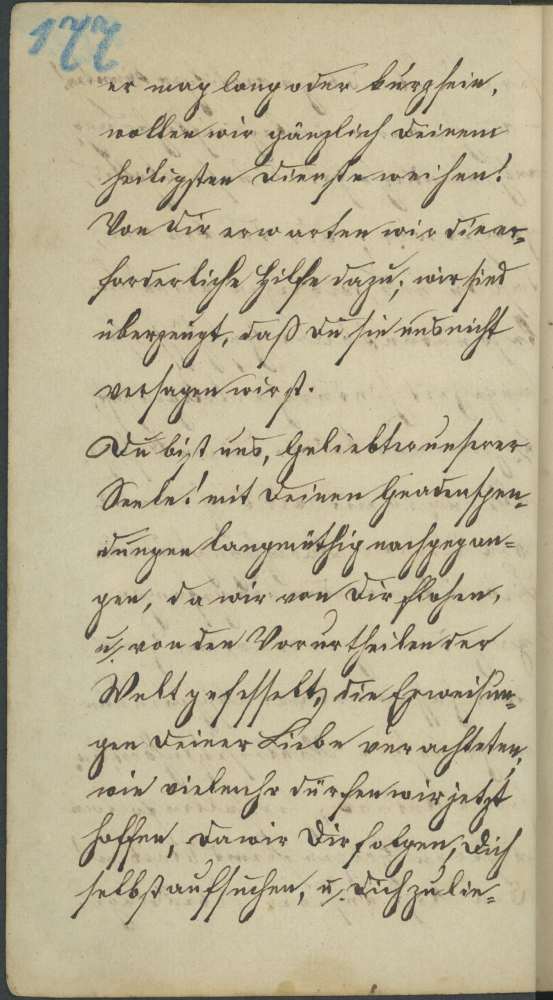 177
er mag lang oder kurz sein,
wollen wir gänzlich Deinem
heiligsten Dienste weihen!
Von Dir erwarten wir die er-
forderliche Hilfe dazu; wir sind
überzeugt, daß Du sie uns nicht
versagen wirst.
Du bist uns, Geliebter unserer
Seele! mit Deinen Gnadenspen-
dungen langmüthig nachgegan-
gen, da wir von Dir flohen,
u. von den Vorurtheilen der
Welt gefesselt, die Erweisun-
gen Deiner Liebe verachteten,
wie vielmehr dürfen wir jetzt
hoffen, da wir Dir folgen, Dich
selbst aufsuchen, u. Dich zu lie-